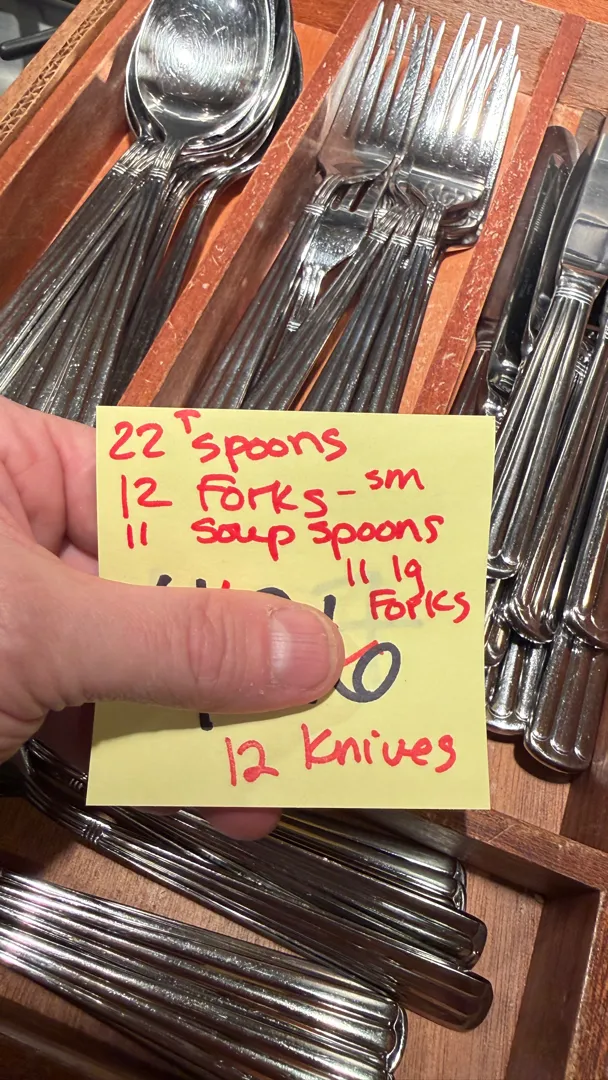 22 T spoons
12 Forks - sm
11 soup spoons
11 lg
Forks
12 Knives